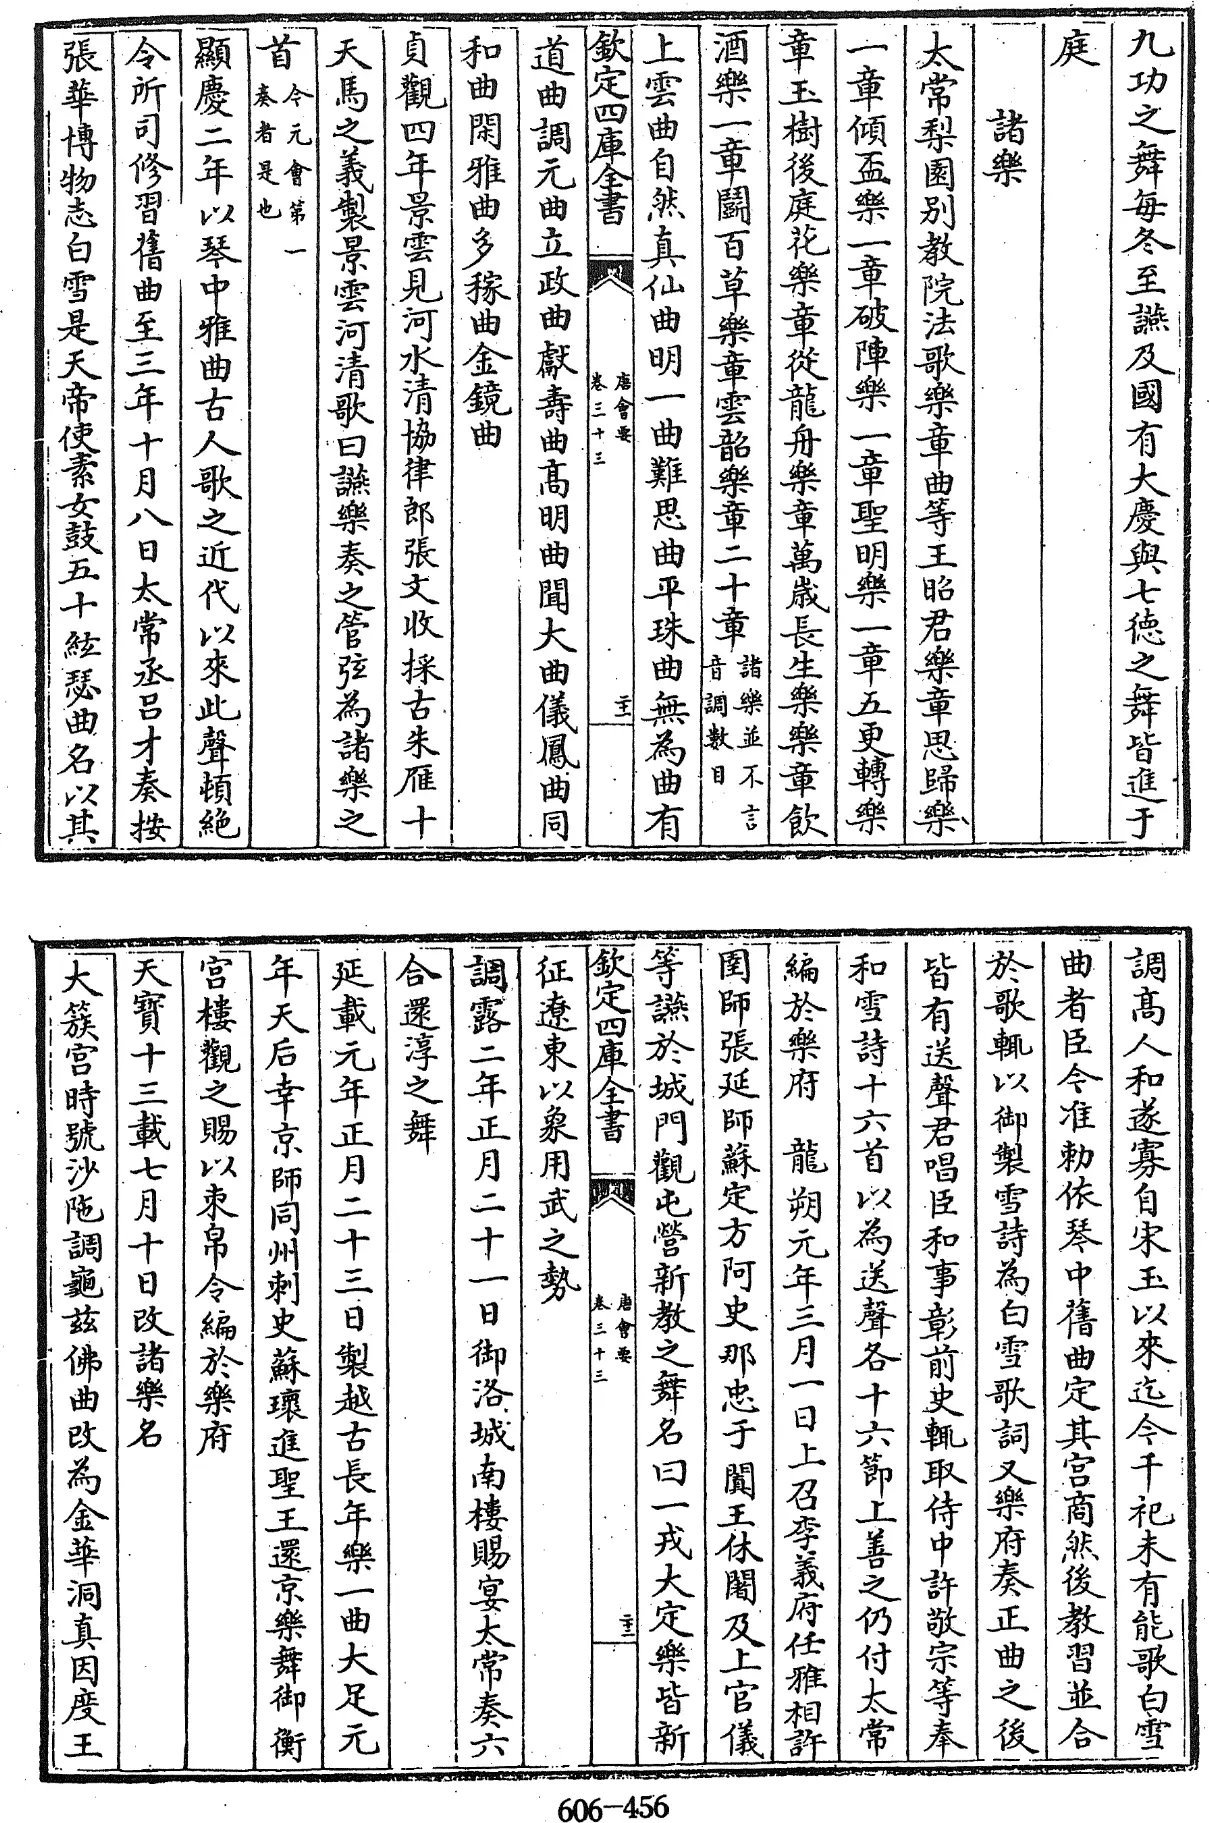 九功之舞每冬至讌及國有大慶與七徳之舞皆進于
庭
諸樂
太常梨園别教院法歌樂章曲等王昭君樂章思歸樂
一章傾盃樂一章破陣樂一章聖明樂一章五更轉樂
章玉樹後庭花樂章從龍舟樂章萬歳長生樂樂章飲
酒樂一章鬪百草樂章雲韶樂章二十章諸樂並不言音調數目
上雲曲自然真仙曲明一曲難思曲平珠曲無為曲有
欽定四庫全書
唐會要
卷三十三
二十一
道曲調元曲立政曲獻壽曲髙明曲聞大曲儀鳳曲同
和曲閑雅曲多稼曲金鏡曲
貞觀四年景雲見河水清協律郎張文收採古朱雁十
天馬之義製景雲河清歌曰讌樂奏之管弦為諸樂之
首今元會第一奏者是也
顯慶二年以琴中雅曲古人歌之近代以來此聲頓絶
令所司修習舊曲至三年十月八日太常丞呂才奏按
張華博物志白雪是天帝使素女鼓五十絃瑟曲名以其
調髙人和遂寡自宋玉以來迄今千祀未有能歌白雪
曲者臣今准勅依琴中舊曲定其宫商然後教習並合
於歌輒以御製雪詩為白雪歌詞又樂府奏正曲之後
皆有送聲君唱臣和事彰前史輒取侍中許敬宗等奉
和雪詩十六首以為送聲各十六節上善之仍付太常
編於樂府 龍朔元年三月一日上召李義府任雅相許
圉師張延師蘇定方阿史那忠于闐王休闍及上官儀
等讌於城門觀屯營新教之舞名曰一戎大定樂皆新
欽定四庫全書
唐會要
卷三十三
二十二
征遼東以象用武之勢
調露二年正月二十一日御洛城南樓賜宴太常奏六
合還淳之舞
延載元年正月二十三日製越古長年樂一曲大足元
年天后幸京師同州刺史蘇瓌進聖王還京樂舞御衡
宫樓觀之賜以束帛令編於樂府
天寶十三載七月十日改諸樂名
大簇宫時號沙陁調龜兹佛曲改為金華洞真因度王
606-456